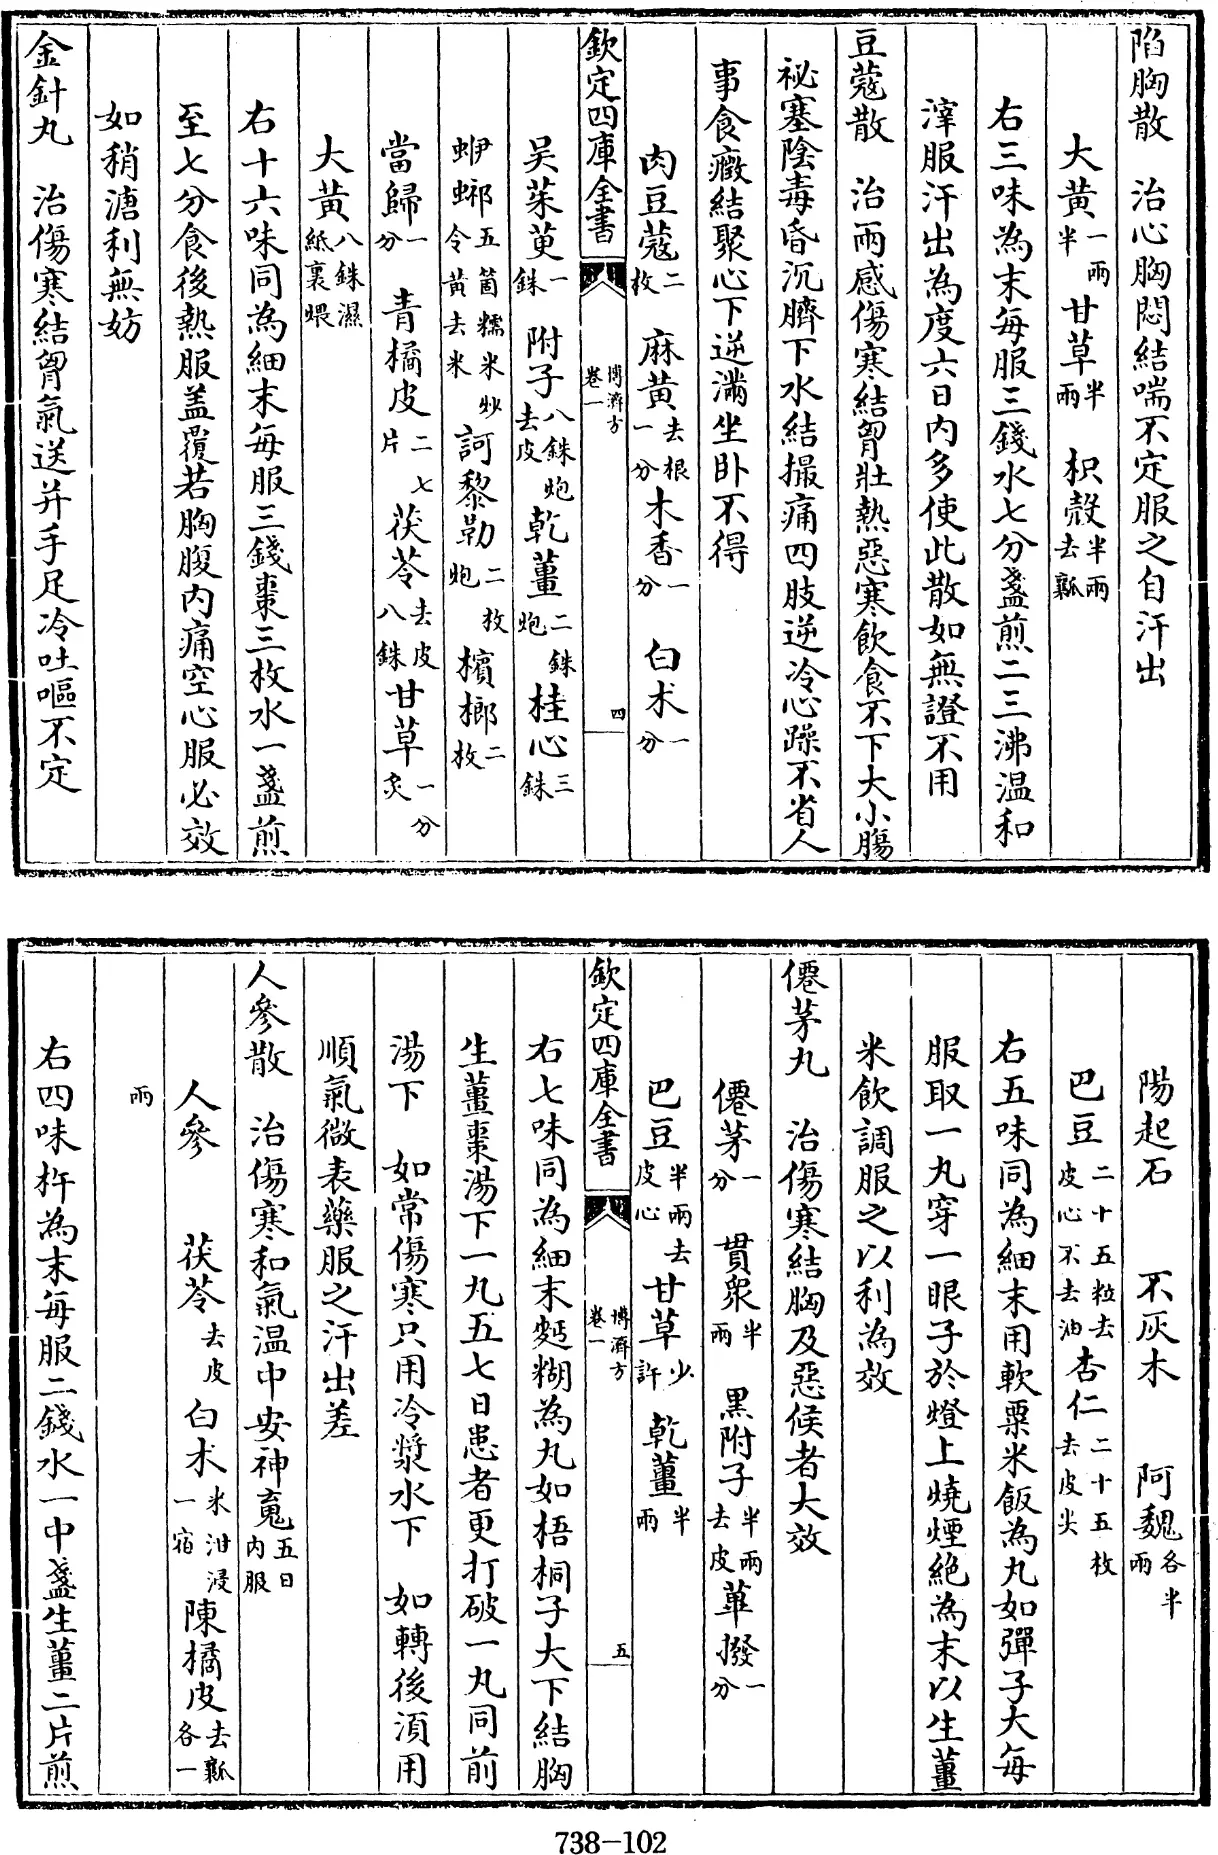 陷胸散　治心胸悶結喘不定服之自汗出
大黃一兩半　甘草半兩　枳殼半兩去瓤
右三味為末每服三錢水七分盞煎二三沸温和
滓服汗出為度六日内多使此散如無證不用
豆蔻散　治兩感傷寒結胷壯熱惡寒飲食不下大小腸
祕塞陰毒昏沉臍下水結撮痛四肢逆冷心躁不省人
事食癥結聚心下逆滿坐卧不得
肉豆蔻二枚　麻黃去根一分　木香一分　白术一分
欽定四庫全書　博濟方卷一　四
吴茱萸一銖　附子八銖炮去皮　乾薑二銖炮　桂心三銖
蛜螂五箇糯米炒令黃去米　訶黎勒二枚炮　檳榔二枚
當歸一分　青橘皮二七片　茯苓去皮八銖　甘草一分炙
大黃八銖濕紙裏煨
右十六味同為細末每服三錢棗三枚水一盞煎
至七分食後熱服盖覆若胸腹内痛空心服必效
如稍溏利無妨
金針丸　治傷寒結胷氣送并手足冷吐嘔不定
陽起石　不灰木　阿魏各半兩
巴豆二十五粒去皮心不去油　杏仁二十五枚去皮尖
右五味同為細末用軟粟米飯為丸如彈子大每
服取一丸穿一眼子於燈上燒煙絶為末以生薑
米飲調服之以利為效
僊茅丸　治傷寒結胸及惡候者大效
僊茅一分　貫衆半兩　黑附子半兩去皮　蓽撥一分
巴豆半兩去皮心　甘草少許　乾薑半兩
欽定四庫全書　博濟方卷一　五
右七味同為細末麪糊為丸如梧桐子大下結胸
生薑棗湯下一丸五七日患者更打破一丸同前
湯下　如常傷寒只用冷漿水下　如轉後湏用
順氣微表藥服之汗出差
人參散　治傷寒和氣温中安神䰟五日内服
人參　茯苓去皮　白术米泔浸一宿　陳橘皮去瓤各一
兩
右四味杵為末每服二錢水一中盞生薑二片煎
738-102